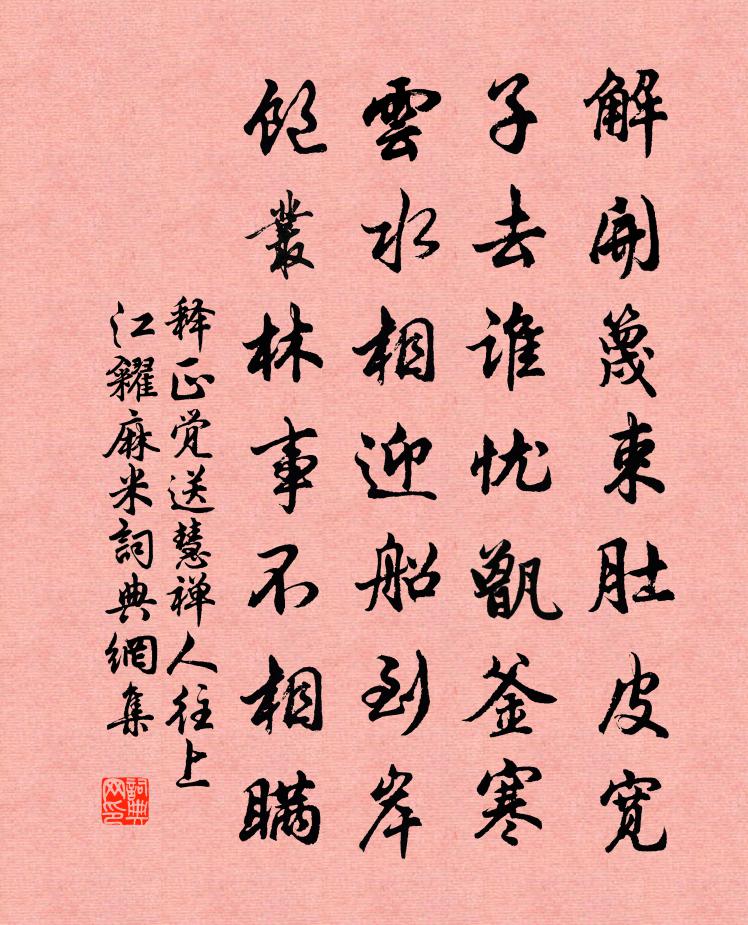 解開蔑束肚皮寬
子去誰忧甑釜寒
雲水相迎船到岸
飽叢林事不相瞞
释正觉送慧禅人往上
江糴麻米詞典網集
詞典网印